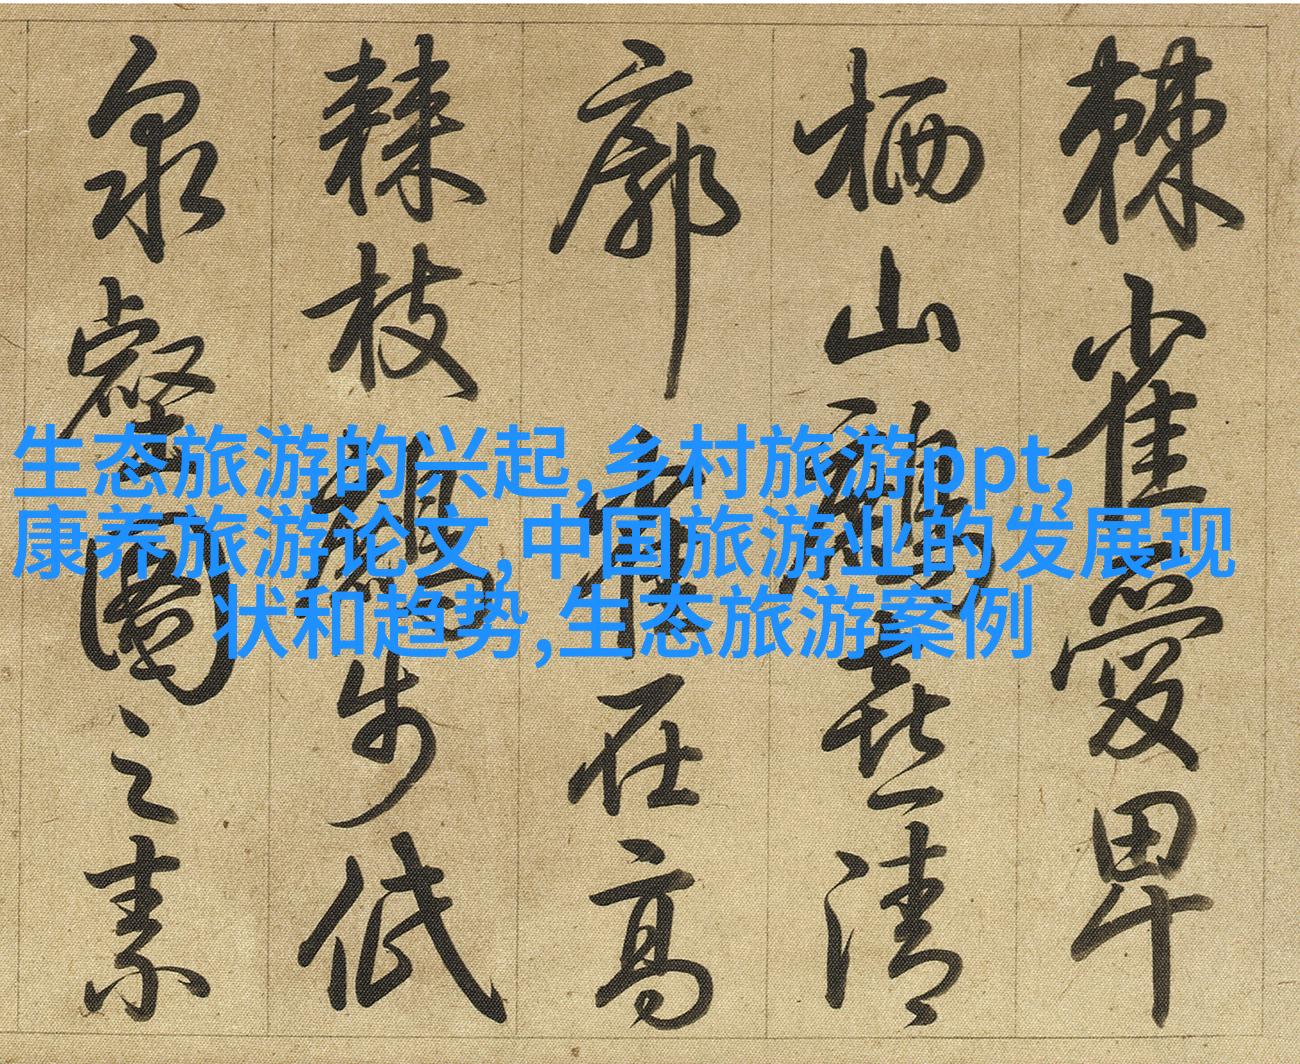 棘雀愛卑
栖山喜清
廓在高
棘枝步低
泉壑圖之素
生态旅游的兴起,乡村旅游ppt,
康养旅游论文,中国旅游业的发展现
状和趋势,生态旅游案例